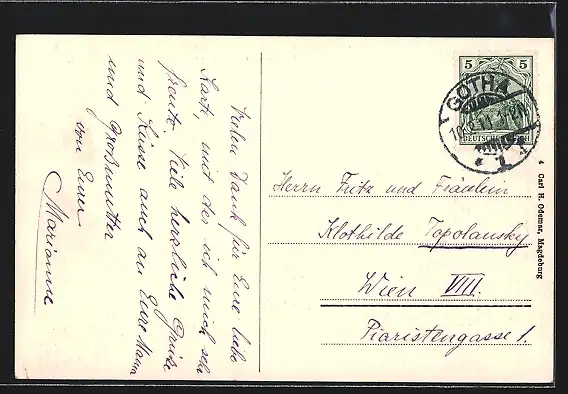 Vielen Dank für Eure liebe
Karte, mit der ich mich sehr
freute. Viele herzliche Grüße
und Küsse auch an Eure Mama
und Großmutter
von Eurer
Marianne
5 5
GOTHA
DEUTSCHES REICH
1
Herrn Fritz und Fräulein
Klothilde Topolansky
Wien VIII.
Piaristengasse 1.
4 Carl H. Odemar, Magdeburg